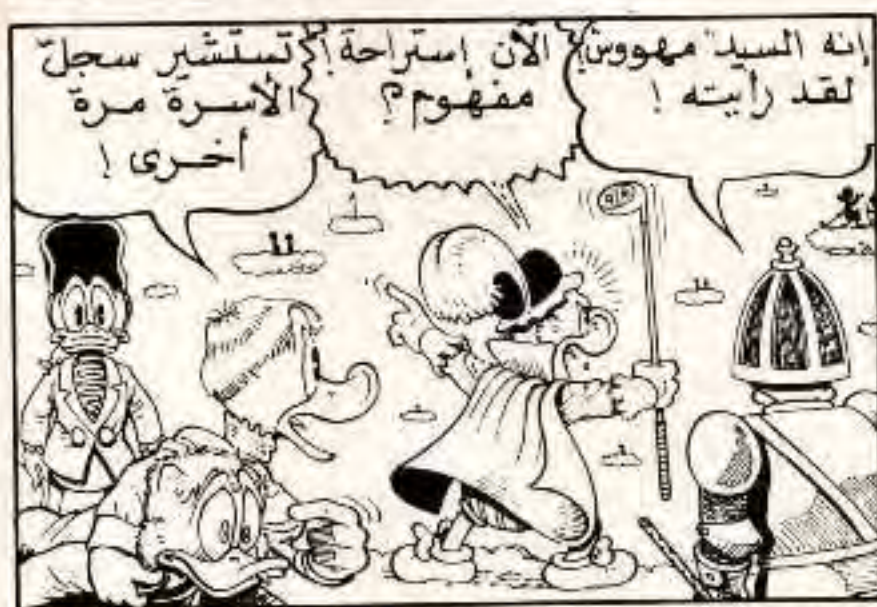 إنه السيد مهووس!
لقد رأيته !
الآن إستراحة!
مفهوم؟
تستشير سجل
الأسرة مرة
أخرى !